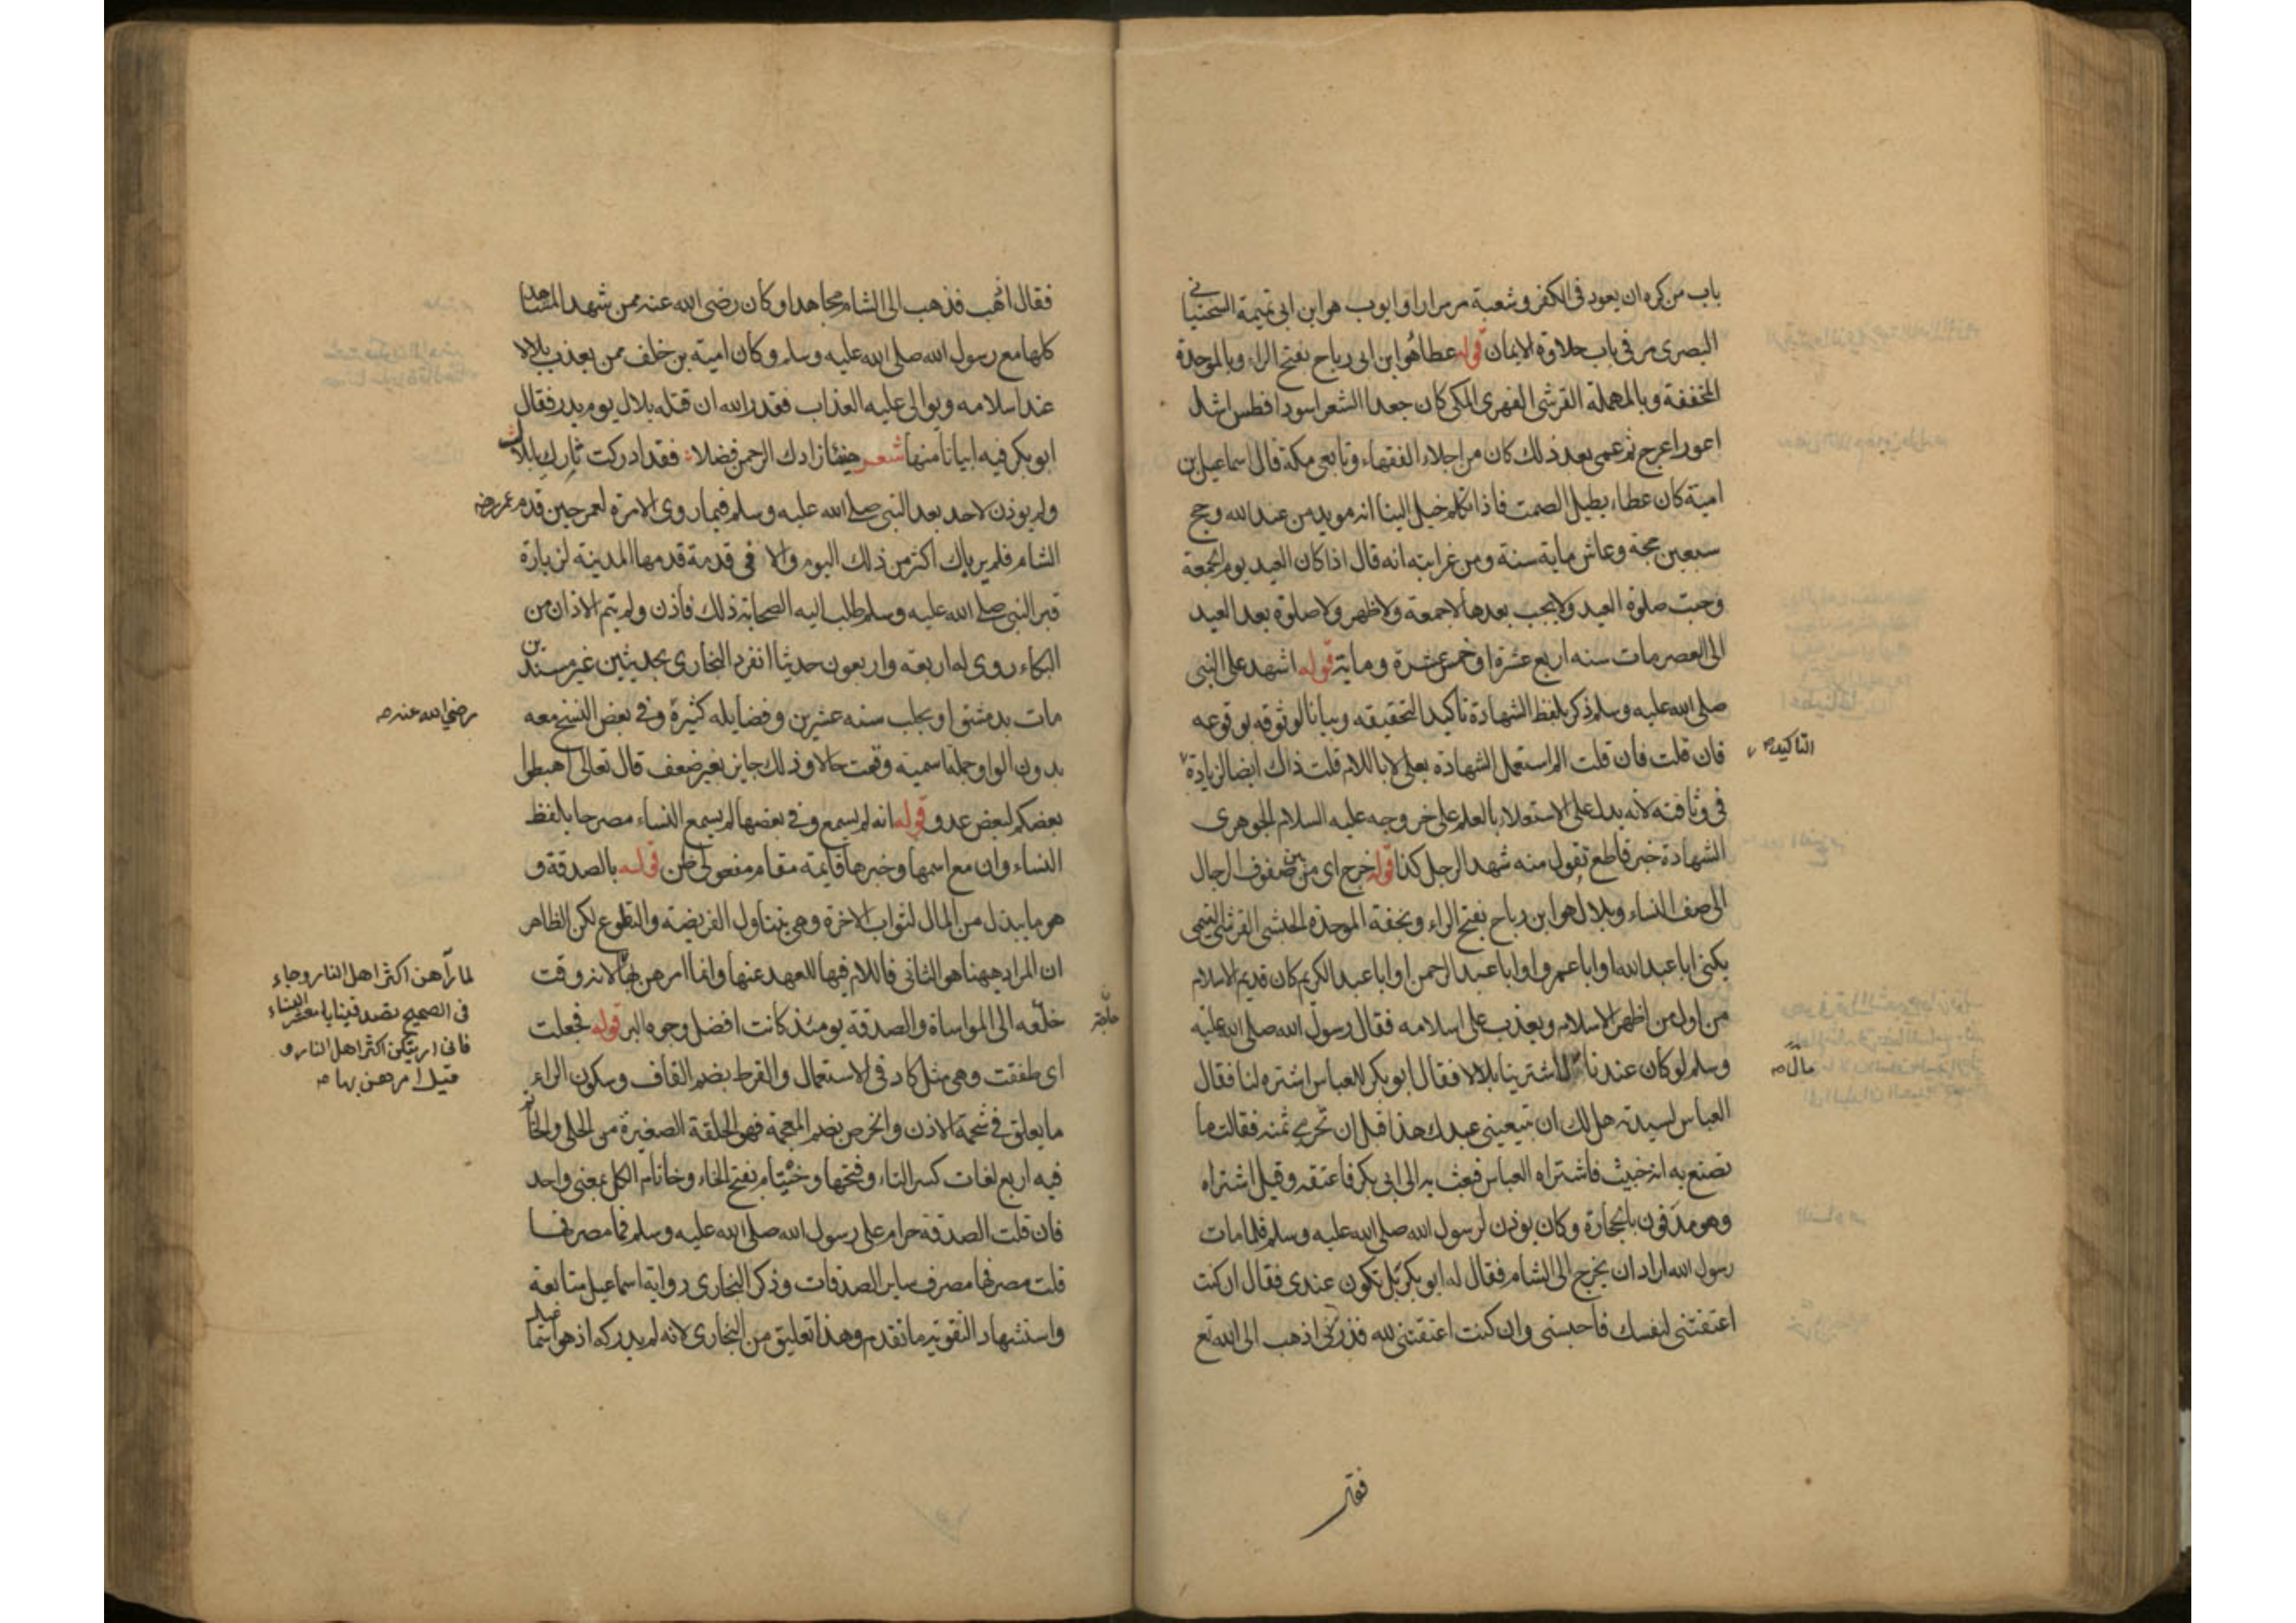 باب من كره ان يعود فى الكفر وشعبة مر مرارا وايوب هو ابن ابى تميمة السختيانى
البصرى مر فى باب حلاوة الايمان قوله عطا هو ابن ابى رباح بفتح الراء وبالموحدة
المخففة وبالمهملة القرشى الفهرى المكى كان جعد الشعر اسود افطس اشل
اعور اعرج ثم عمى بعد ذلك كان من اجلاء الفقهاء وتابعى مكة قال اسماعيل بن
امية كان عطاء يطيل الصمت فاذا تكلم خيل الينا انه مويد من عند الله وحج
سبعين حجة وعاش ماية سنة ومن غرايبه انه قال اذا كان العيد يوم الجمعة
وجبت صلوة العيد ولا يجب بعدها لا جمعة ولا ظهر ولا صلوة بعد العيد
الى العصر مات سنه اربع عشرة او خمس عشرة وماية قوله اشهد على النبى
صلى الله عليه وسلم ذكر بلفظ الشهادة تأكيدا لتحقيقه وبيانا لوثوقه بوقوعه
فان قلت فان قلت لم استعمل الشهادة بعلى لا باللام قلت ذاك ايضا لزيادة
التاكيد صح
فى وثاقته لانه يدل على الاستعلاء بالعلم على خروجه عليه السلام الجوهرى
الشهادة خبر قاطع تقول منه شهد الرجل كذا قوله خرج اى من بين صفوف الرجال
الى صف النساء وبلال هو ابن رباح بفتح الراء وبخفة الموحدة الحبشى القرشى التيمى
يكنى ابا عبد الله او ابا عمرو او ابا عبد الرحمن او ابا عبد الكريم كان قديم الاسلام
من اول من اظهر الاسلام ويعذب على اسلامه فقال رسول الله صلى الله عليه
وسلم لو كان عندنا لاشترينا بلالا فقال ابو بكر للعباس اشتره لنا فقال
مال صح
العباس لسيدته هل لك ان تبيعينى عبدك هذا قبل ان تحرمى ثمنه فقالت ما
تصنع به انه خبيث فاشتراه العباس فبعث به الى ابى بكر فاعتقه وقيل اشتراه
وهو مدفون بالحجارة وكان يوذن لرسول الله صلى الله عليه وسلم فلما مات
رسول الله اراد ان يخرج الى الشام فقال له ابو بكر بل تكون عندى فقال ان كنت
اعتقتنى لنفسك فاحبسنى وان كنت اعتقتنى لله فذرنى اذهب الى الله تع
فقال
فقال اذهب فذهب الى الشام مجاهدا وكان رضى الله عنه ممن شهد المشاهد
كلها مع رسول الله صلى الله عليه وسلم وكان امية بن خلف ممن يعذب بلالا
عند اسلامه ويوالى عليه العذاب فقدر الله ان قتله بلال يوم بدر فقال
ابو بكر فيه ابياتا منها شعر هنيئا زادك الرحمن فضلا فقد ادركت ثارك يا بلال
ولم يوذن لاحد بعد النبى صلى الله عليه وسلم فيما روى الا مرة لعمر حين قدم عمر رضه
الشام فلم ير باك اكثر من ذلك اليوم والا فى قدمة قدمها المدينة لزيارة
قبر النبى صلى الله عليه وسلم طلب اليه الصحابة ذلك فأذن ولم يتم الاذان من
البكاء روى له اربعة واربعون حديثا انفرد البخارى بحديثين غير مسندين
مات بدمشق او بحلب سنه عشرين وفضايله كثيرة وفى بعض النسخ معه
رضى الله عنه صح
بدون الواو جملة اسمية وقعت حالا وذلك جايز بغير ضعف قال تعالى اهبطوا
بعضكم لبعض عدو قوله انه لم يسمع وفى بعضها لم يسمع النساء مصرحا بلفظ
النساء وان مع اسمها وخبرها قايمة مقام مفعولى ظن قوله بالصدقة و
هو ما يبذل من المال لثواب الاخرة وهى تتناول الفريضة والتطوع لكن الظاهر
ان المراد ههنا هو الثانى فاللام فيها للعهد عنها وانما امرهن بها لانه وقت
لما رآهن اكثر اهل النار وجاء
فى الصحيح تصدقن يا معشر النساء
فانى اريتكن اكثر اهل النار و
قيل امرهن بها صح
حاجة الى المواساة والصدقة يومئذ كانت افضل وجوه البر قوله فجعلت
اى طفقت وهى مثل كاد فى الاستعمال والقرط بضم القاف وسكون الراء
ما يعلق فى شحمة الاذن والخرص بضم المعجمة فهو الحلقة الصغيرة من الحلى والخاتم
فيه اربع لغات كسر التاء وفتحها وخيتام بفتح الخاء وخاتام الكل بمعنى واحد
فان قلت الصدقة حرام على رسول الله صلى الله عليه وسلم فما مصرفها
قلت مصرفها مصرف ساير الصدقات وذكر البخارى رواية اسماعيل متابعة
واستشهاد التقوية ما تقدم وهذا تعليق من البخارى لانه لم يدركه اذ هو اسماعيل